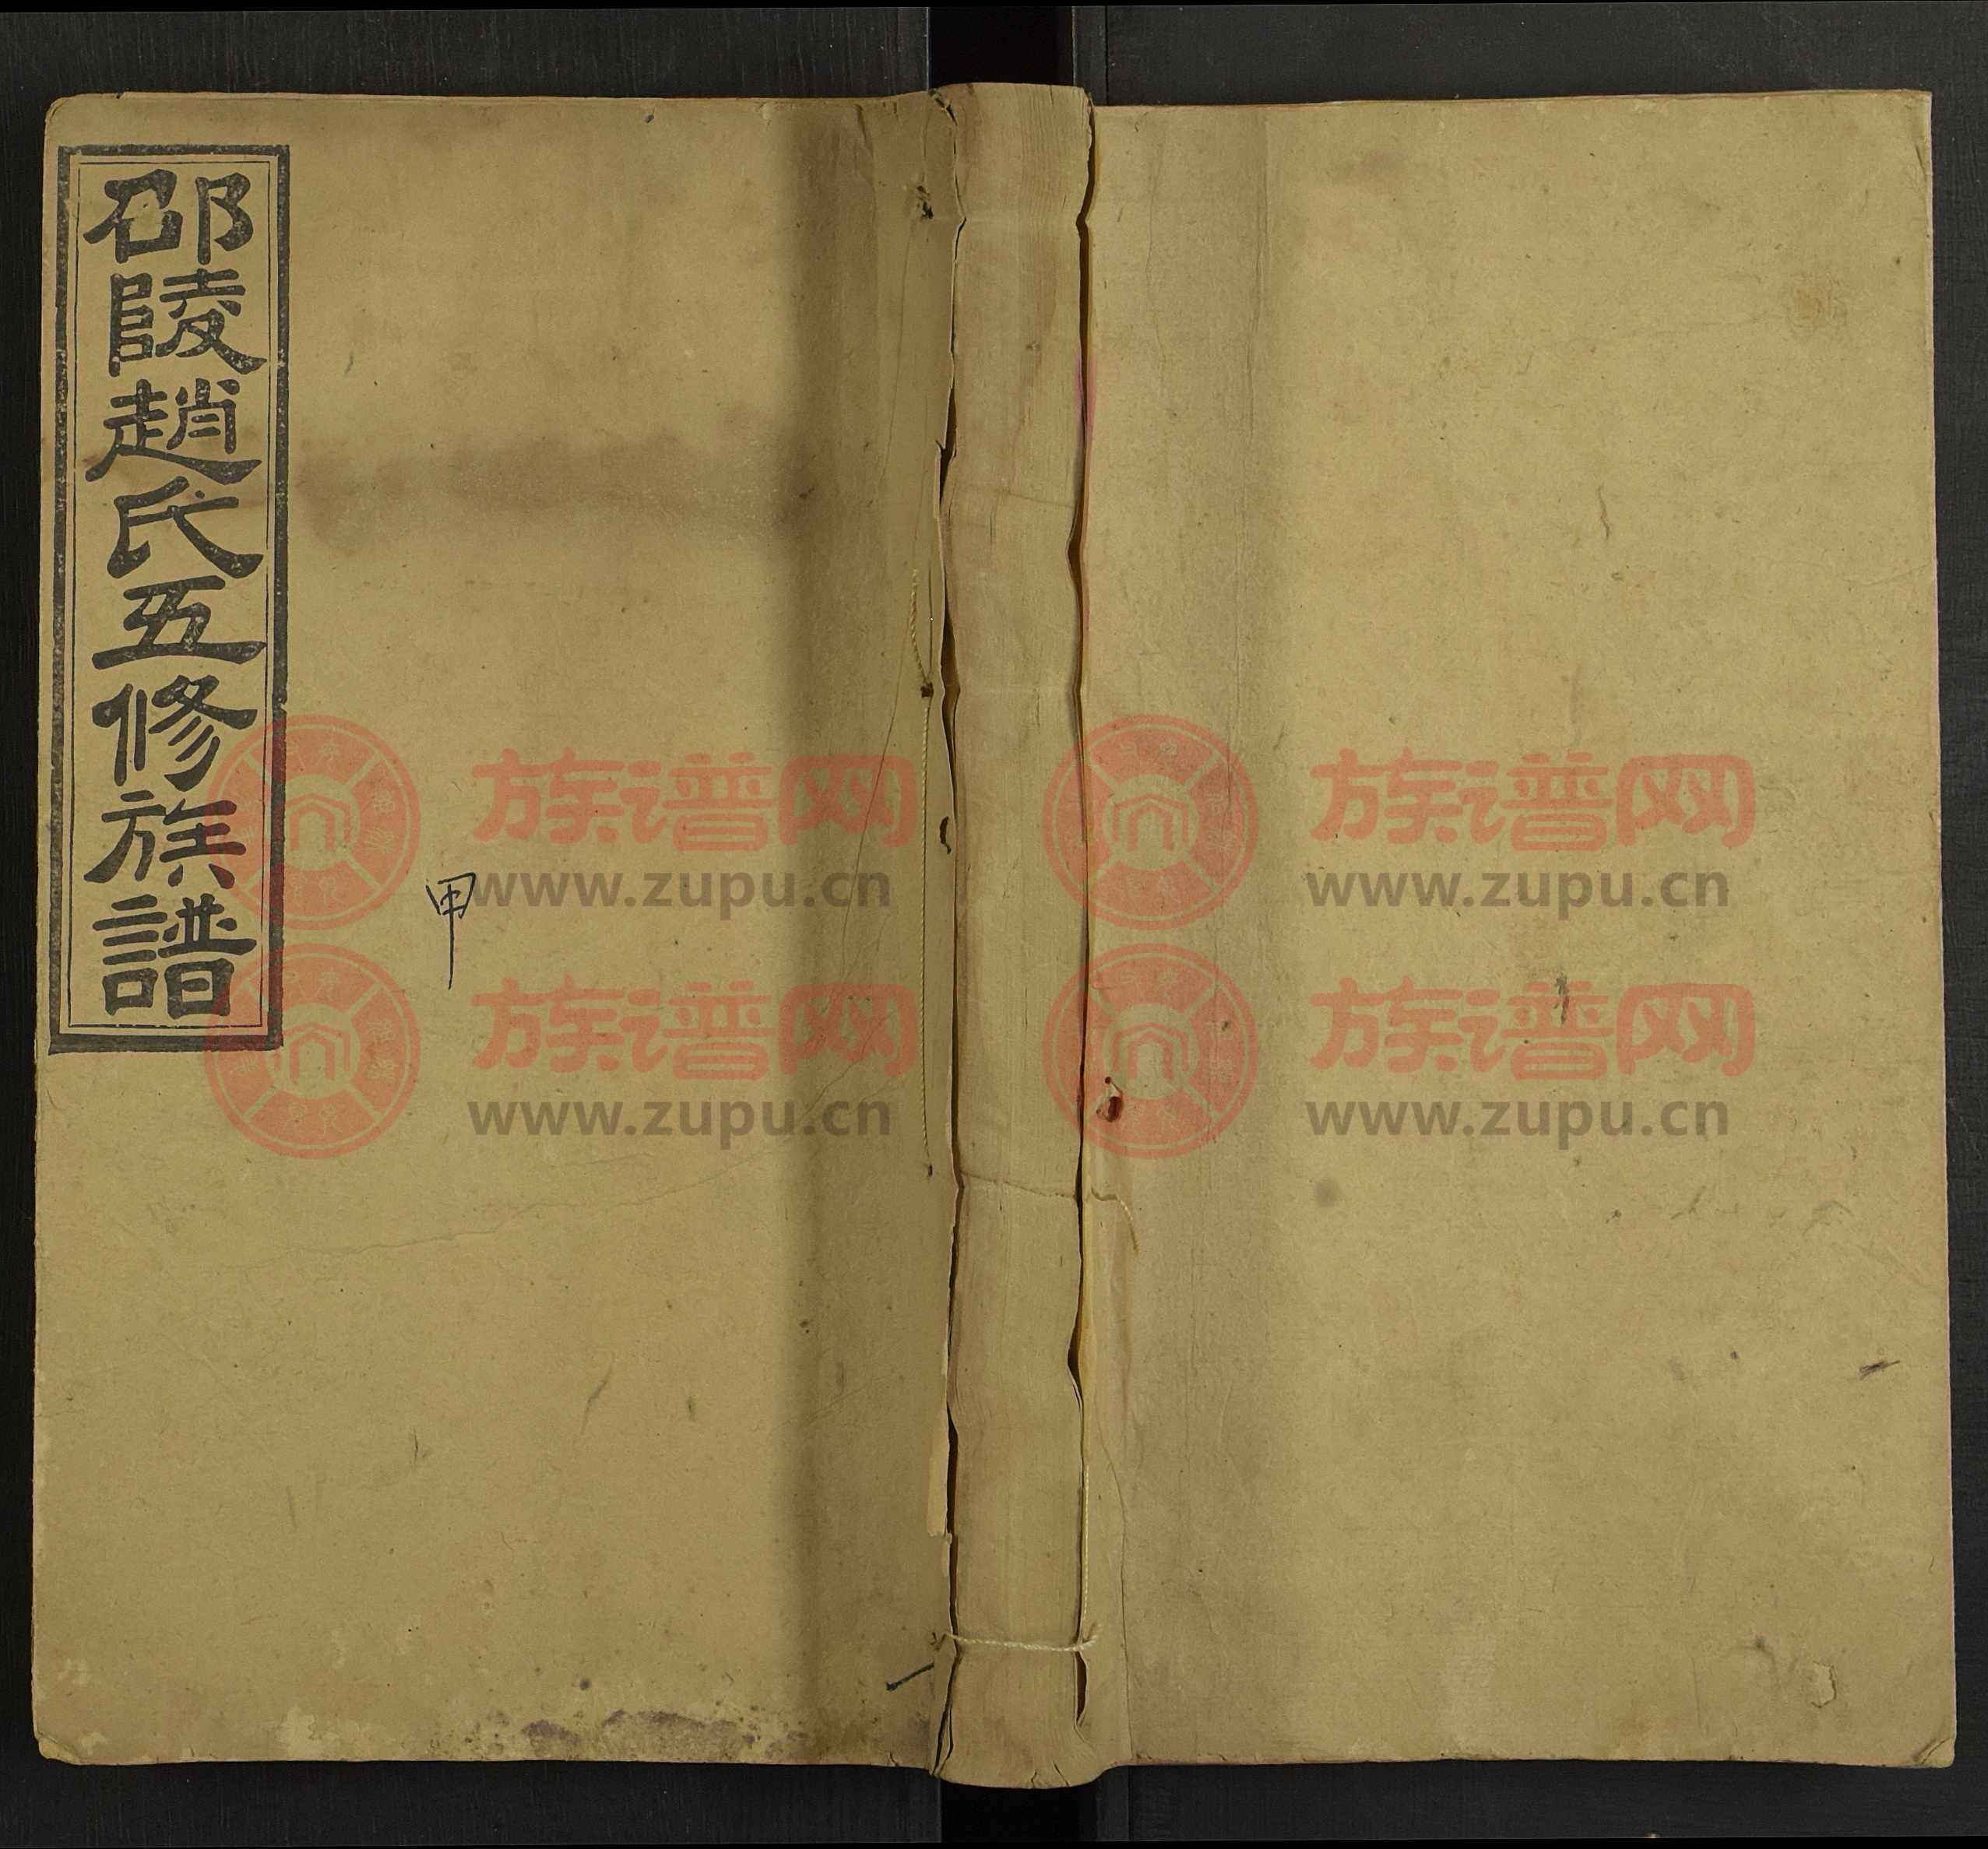 邵陵趙氏五修族譜
甲
族谱网
www.zupu.cn
族谱网
www.zupu.cn
族谱网
www.zupu.cn
族谱网
www.zupu.cn